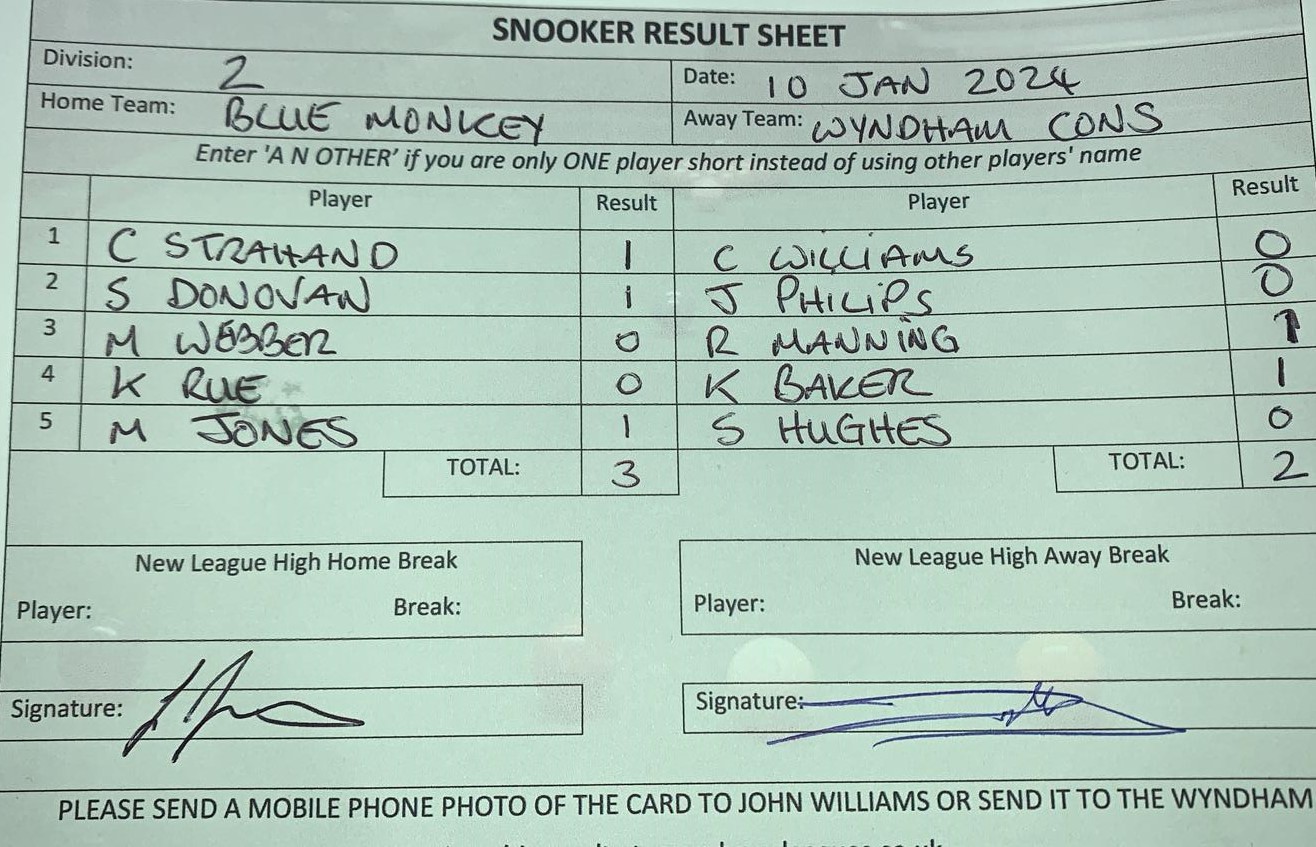 SNOOKER RESULT SHEET
Division: 2 Date: 10 JAN 2024
Home Team: BLUE MONKEY Away Team: WYNDHAM CONS
Enter 'A N OTHER' if you are only ONE player short instead of using other players' name
Player Result Player Result
1 C STRAHAND 1 C WILLIAMS 0
2 S DONOVAN 1 J PHILIPS 0
3 M WEBBER 0 R MANNING 1
4 K RUE 0 K BAKER 1
5 M JONES 1 S HUGHES 0
TOTAL: 3 TOTAL: 2
New League High Home Break New League High Away Break
Player: Break: Player: Break:
Signature: Signature:
PLEASE SEND A MOBILE PHONE PHOTO OF THE CARD TO JOHN WILLIAMS OR SEND IT TO THE WYNDHAM